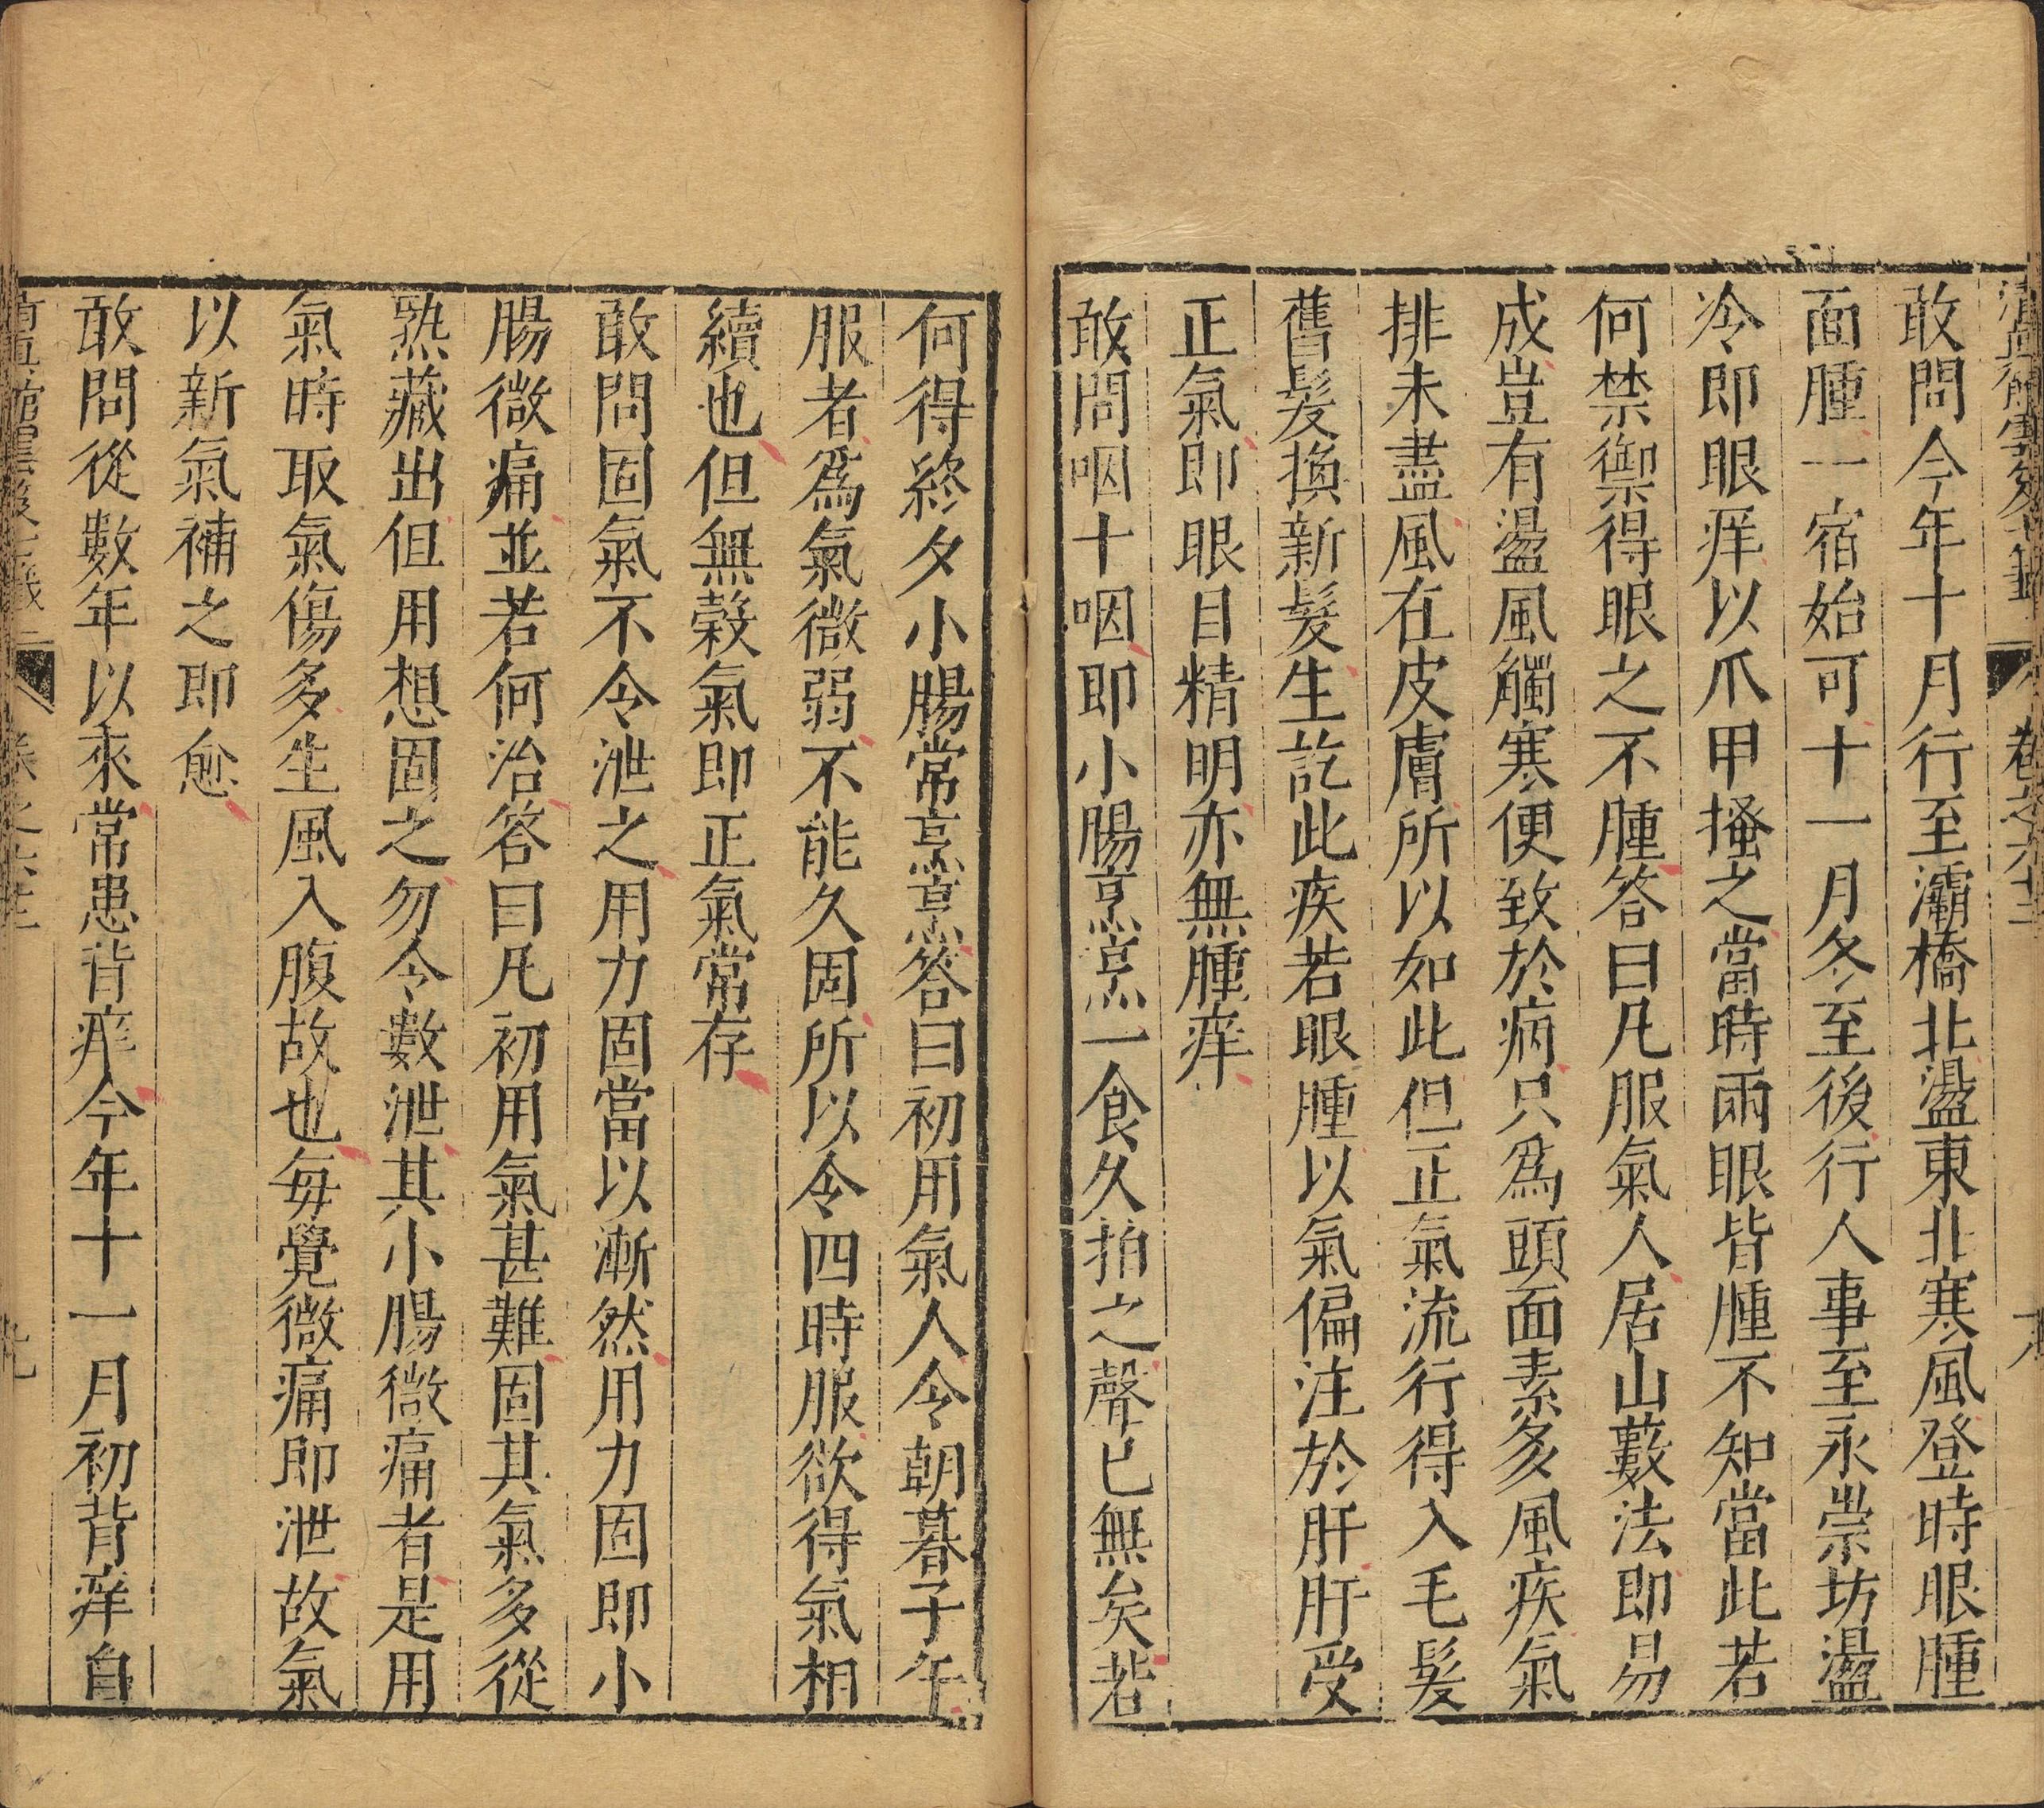 敢問今年十月行至灞橋北盪東北寒風登時眼腫
面腫一宿始可十一月冬至後行人事至永崇坊盪
冷即眼痒以爪甲搔之當時兩眼皆腫不知當此若
何禁禦得眼之不腫答曰凡服氣人居山藪法即易
成豈有盪風觸寒便致於病只爲頭面素多風疾氣
排未盡風在皮膚所以如此但正氣流行得入毛髮
舊髮換新髮生訖此疾若眼腫以氣偏注於肝肝受
正氣即眼目精明亦無腫痒
敢問咽十咽即小腸烹烹一食久拍之聲已無矣若
何得終夕小腸常烹烹答曰初用氣人令朝暮子午
服者爲氣微弱不能久固所以令四時服欲得氣相
續也但無穀氣即正氣常存
敢問固氣不令泄之用力固當以漸然用力固即小
腸微痛並若何治答曰凡初用氣甚難固其氣多從
熟藏出但用想固之勿令數泄其小腸微痛者是用
氣時取氣傷多生風入腹故也每覺微痛即泄故氣
以新氣補之即愈
敢問從數年以來常患背痒今年十一月初背痒自